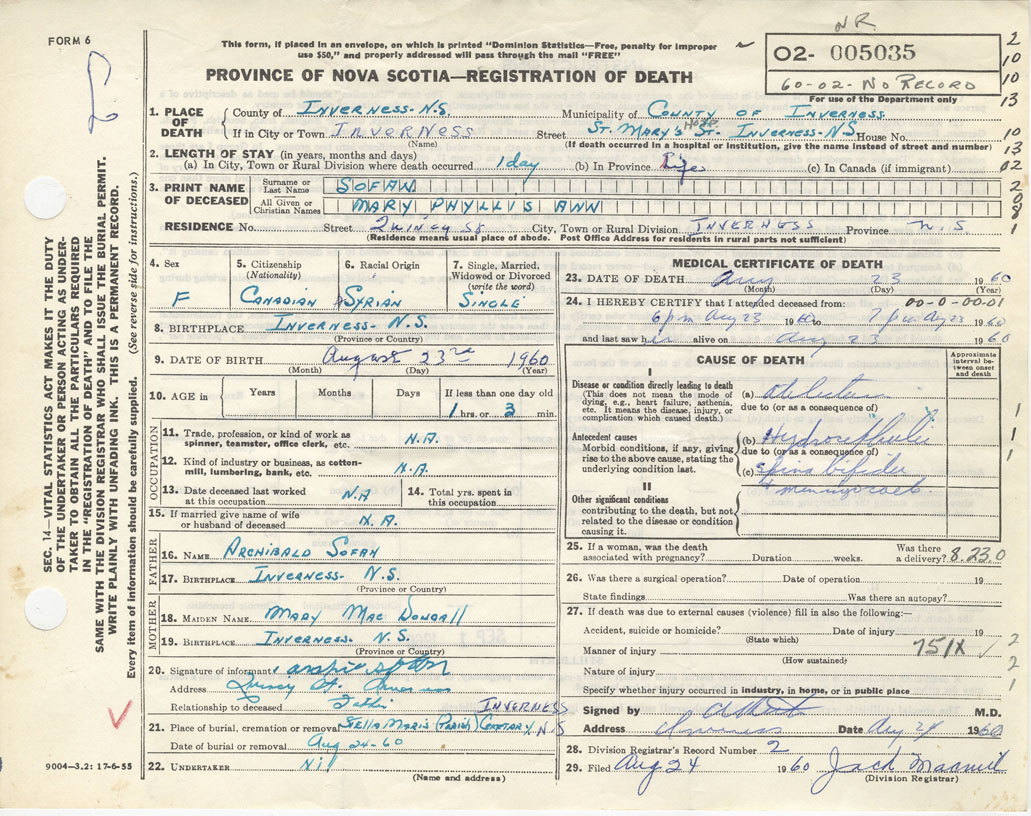 FORM 6
This form, if placed in an envelope, on which is printed "Dominion Statistics—Free, penalty for improper
use $50," and properly addressed will pass through the mail "FREE"
NR
02- 005035
60-02-NO RECORD
For use of the Department only
PROVINCE OF NOVA SCOTIA—REGISTRATION OF DEATH
1. PLACE OF DEATH
County of INVERNESS-N.S. Municipality of COUNTY OF INVERNESS
If in City or Town INVERNESS Street ST. MARY'S HOSP ST. INVERNESS-N.S. House No.
(Name) (If death occurred in a hospital or institution, give the name instead of street and number)
2. LENGTH OF STAY (in years, months and days)
(a) In City, Town or Rural Division where death occurred 1 day (b) In Province Life (c) In Canada (if immigrant)
3. PRINT NAME OF DECEASED
Surname or Last Name SOFAN
All Given or Christian Names MARY PHYLLIS ANN
RESIDENCE No. Street QUINCY ST City, Town or Rural Division INVERNESS Province N.S.
(Residence means usual place of abode. Post Office Address for residents in rural parts not sufficient)
4. Sex F
5. Citizenship (Nationality) CANADIAN
6. Racial Origin SYRIAN
7. Single, Married, Widowed or Divorced (write the word) SINGLE
8. BIRTHPLACE INVERNESS-N.S.
(Province or Country)
9. DATE OF BIRTH August 23rd 1960
(Month) (Day) (Year)
10. AGE in Years Months Days If less than one day
1 hrs. or 3 min.
OCCUPATION
11. Trade, profession, or kind of work as spinner, teamster, office clerk, etc. N.A.
12. Kind of industry or business, as cotton-mill, lumbering, bank, etc. N.A.
13. Date deceased last worked at this occupation N.A 14. Total yrs. spent in this occupation
15. If married give name of wife or husband of deceased N.A.
FATHER
16. NAME ARCHIBALD SOFAN
17. BIRTHPLACE INVERNESS- N.S.
(Province or Country)
MOTHER
18. MAIDEN NAME MARY MAC DOUGALL
19. BIRTHPLACE INVERNESS- N.S.
(Province or Country)
20. Signature of informant
Address Quincy St. Inverness
Relationship to deceased Father
INVERNESS
21. Place of burial, cremation or removal STELLA MARIS (PARISH) CEMETARY, N.S
Date of burial or removal Aug 24-60
22. UNDERTAKER Nil
(Name and address)
MEDICAL CERTIFICATE OF DEATH
23. DATE OF DEATH Aug 23 1960
(Month) (Day) (Year)
24. I HEREBY CERTIFY that I attended deceased from: 00-0-00-01
6 pm Aug 23 1960 to 7 pm Aug 23 1960
and last saw her alive on Aug 23 1960
CAUSE OF DEATH
Approximate interval between onset and death
I
Disease or condition directly leading to death
(This does not mean the mode of dying, e.g., heart failure, asthenia, etc. It means the disease, injury, or complication which caused death.)
(a)
due to (or as a consequence of)
Antecedent causes
Morbid conditions, if any, giving rise to the above cause, stating the underlying condition last.
(b) Hydrocephalus
due to (or as a consequence of)
(c) Spina bifida
+ meningocoele
II
Other significant conditions
contributing to the death, but not related to the disease or condition causing it.
25. If a woman, was the death associated with pregnancy? Duration weeks. Was there a delivery? 8.23.0
26. Was there a surgical operation? Date of operation 19
State findings Was there an autopsy?
27. If death was due to external causes (violence) fill in also the following:—
Accident, suicide or homicide? Date of injury 19
(State which)
Manner of injury 751X
(How sustained)
Nature of injury
Specify whether injury occurred in industry, in home, or in public place
Signed by M.D.
Address Inverness Date Aug 24 1960
28. Division Registrar's Record Number 2
29. Filed Aug 24 1960
(Division Registrar)
SEC. 14—VITAL STATISTICS ACT MAKES IT THE DUTY
OF THE UNDERTAKER OR PERSON ACTING AS UNDER-
TAKER TO OBTAIN ALL THE PARTICULARS REQUIRED
IN THE "REGISTRATION OF DEATH" AND TO FILE THE
SAME WITH THE DIVISION REGISTRAR WHO SHALL ISSUE THE BURIAL PERMIT.
WRITE PLAINLY WITH UNFADING INK. THIS IS A PERMANENT RECORD.
Every item of information should be carefully supplied. (See reverse side for instructions.)
9004—3.2: 17-6-55
2
10
10
13
10
13
02
2
0
0
8
1
1
1
1
2
2
1